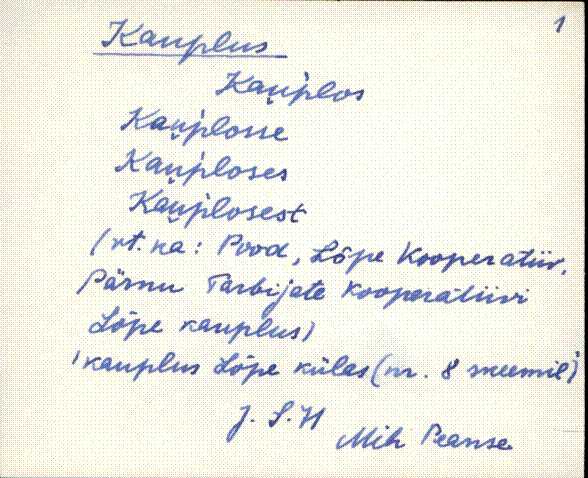 1
Kauplus
Kau̯plos
Kau̯plosse
Kau̯ploses
Kau̯plosest
(vt. ka: Pood, Lõpe Kooperatiiv,
Pärnu Tarbijate Kooperatiivi
Lõpe kauplus)
'kauplus Lõpe külas (nr. 8 skeemil)'
J. S.H
Mih Peanse